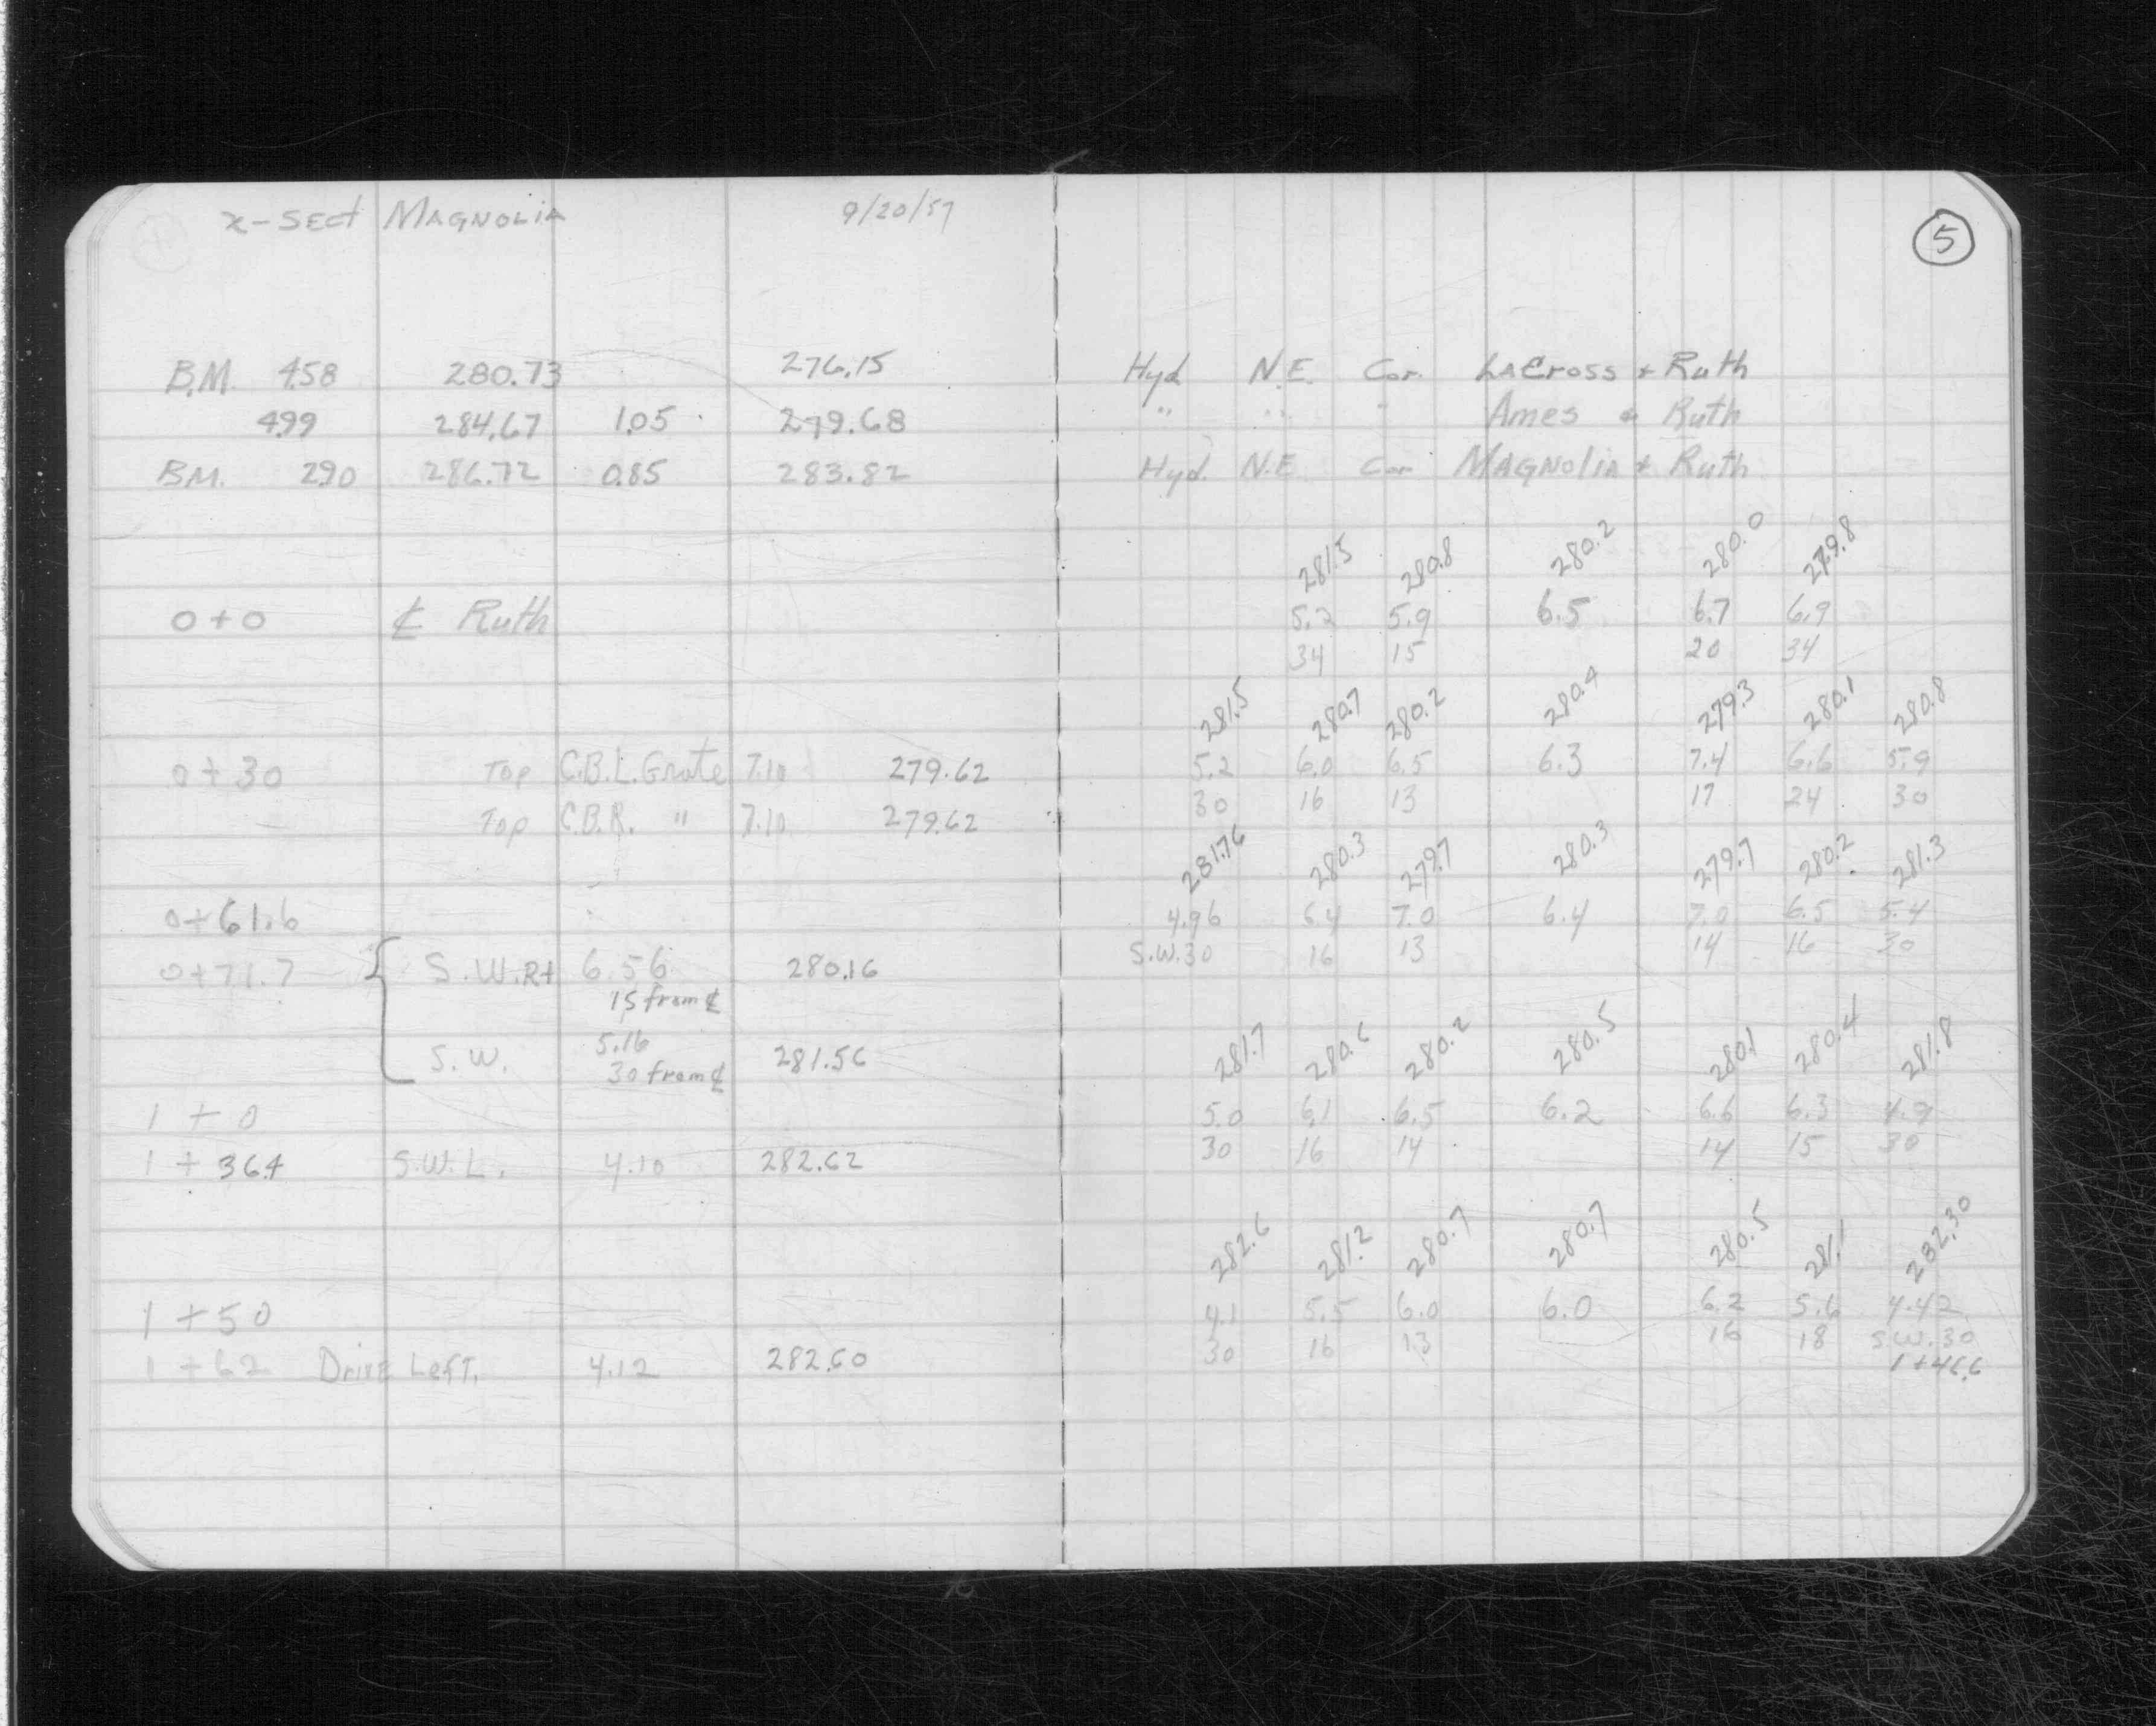 x-Sect Magnolia 9/20/57
5
B.M. 458 280.73 276.15 Hyd N.E. Cor. LaCross + Ruth
499 284.67 1.05 279.68 " " " Ames & Ruth
B.M. 2.90 286.72 0.85 283.82 Hyd. N.E Cor Magnolia & Ruth
281.5 280.8 280.2 280.0 279.8
0+0 ℄ Ruth 5.2 5.9 6.5 6.7 6.9
34 15 20 34
281.5 280.7 280.2 280.4 279.3 280.1 280.8
0+30 Top C.B.L. Grate 7.10 279.62 5.2 6.0 6.5 6.3 7.4 6.6 5.9
Top C.B.R. " 7.10 279.62 30 16 13 17 24 30
281.76 280.3 279.7 280.3 279.7 280.2 281.3
0+61.6 4.96 6.4 7.0 6.4 7.0 6.5 5.4
0+71.7 S.W.Rt 6.56 280.16 S.W.30 16 13 14 16 30
15 from ℄
S.W. 5.16 281.56
30 from ℄
281.7 280.6 280.2 280.5 280.1 280.4 281.8
1+0 5.0 6.1 6.5 6.2 6.6 6.3 4.9
1+36.4 S.W.L. 4.10 282.62 30 16 14 14 15 30
282.6 281.2 280.7 280.7 280.5 281.1 282.30
1+50 4.1 5.5 6.0 6.0 6.2 5.6 4.42
1+62 Drive Left. 4.12 282.60 30 16 13 16 18 S.W.30
1+46.6